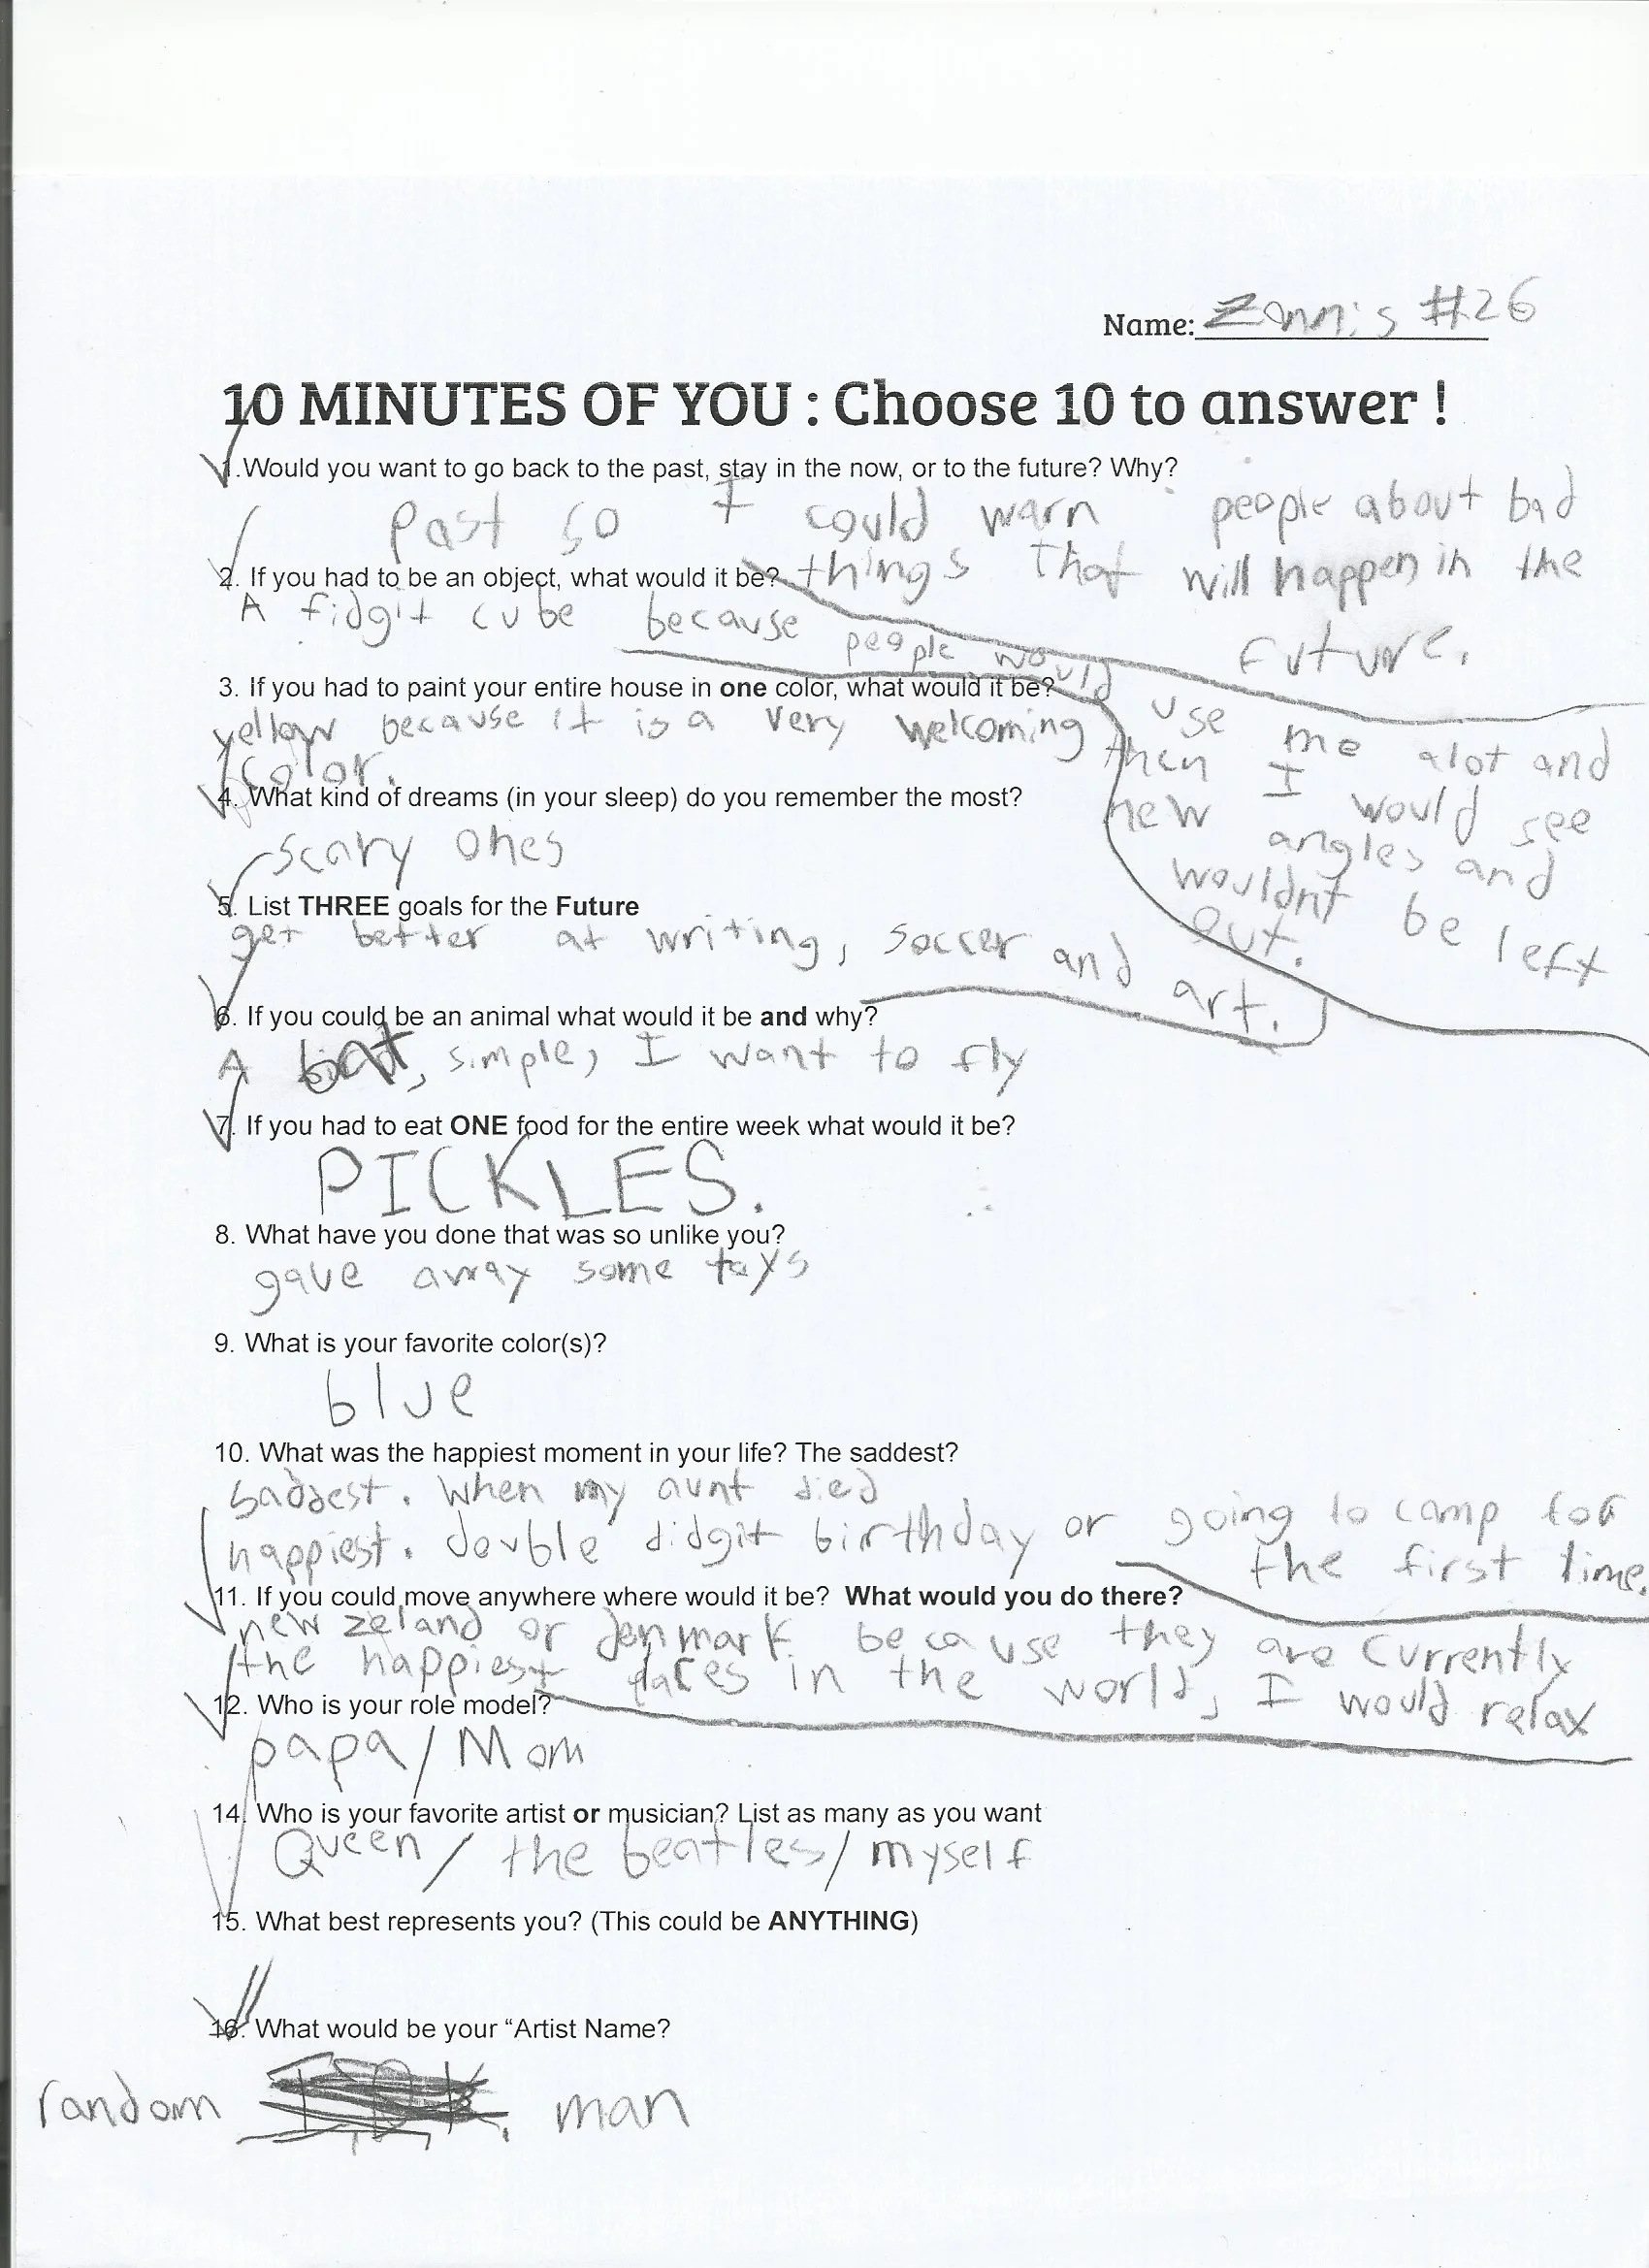 Name: Zannis #26
10 MINUTES OF YOU : Choose 10 to answer !
1.Would you want to go back to the past, stay in the now, or to the future? Why?
Past so I could warn people about bad
things that will happen in the
future.
2. If you had to be an object, what would it be?
A fidgit cube because people would
use me alot and
then I would see
new angles and
wouldnt be left
out.
3. If you had to paint your entire house in one color, what would it be?
yellow because it is a very welcoming
color.
4. What kind of dreams (in your sleep) do you remember the most?
scary ones
5. List THREE goals for the Future
get better at writing, soccer and art.
6. If you could be an animal what would it be and why?
A bat, simple, I want to fly
7. If you had to eat ONE food for the entire week what would it be?
PICKLES.
8. What have you done that was so unlike you?
gave away some toys
9. What is your favorite color(s)?
blue
10. What was the happiest moment in your life? The saddest?
saddest. When my aunt died
happiest. double didgit birthday or going to camp for
the first time.
11. If you could move anywhere where would it be? What would you do there?
new zeland or Denmark because they are currently
the happiest places in the world, I would relax
12. Who is your role model?
papa/Mom
14. Who is your favorite artist or musician? List as many as you want
Queen/ the beatles/ myself
15. What best represents you? (This could be ANYTHING)
16. What would be your “Artist Name?
random man